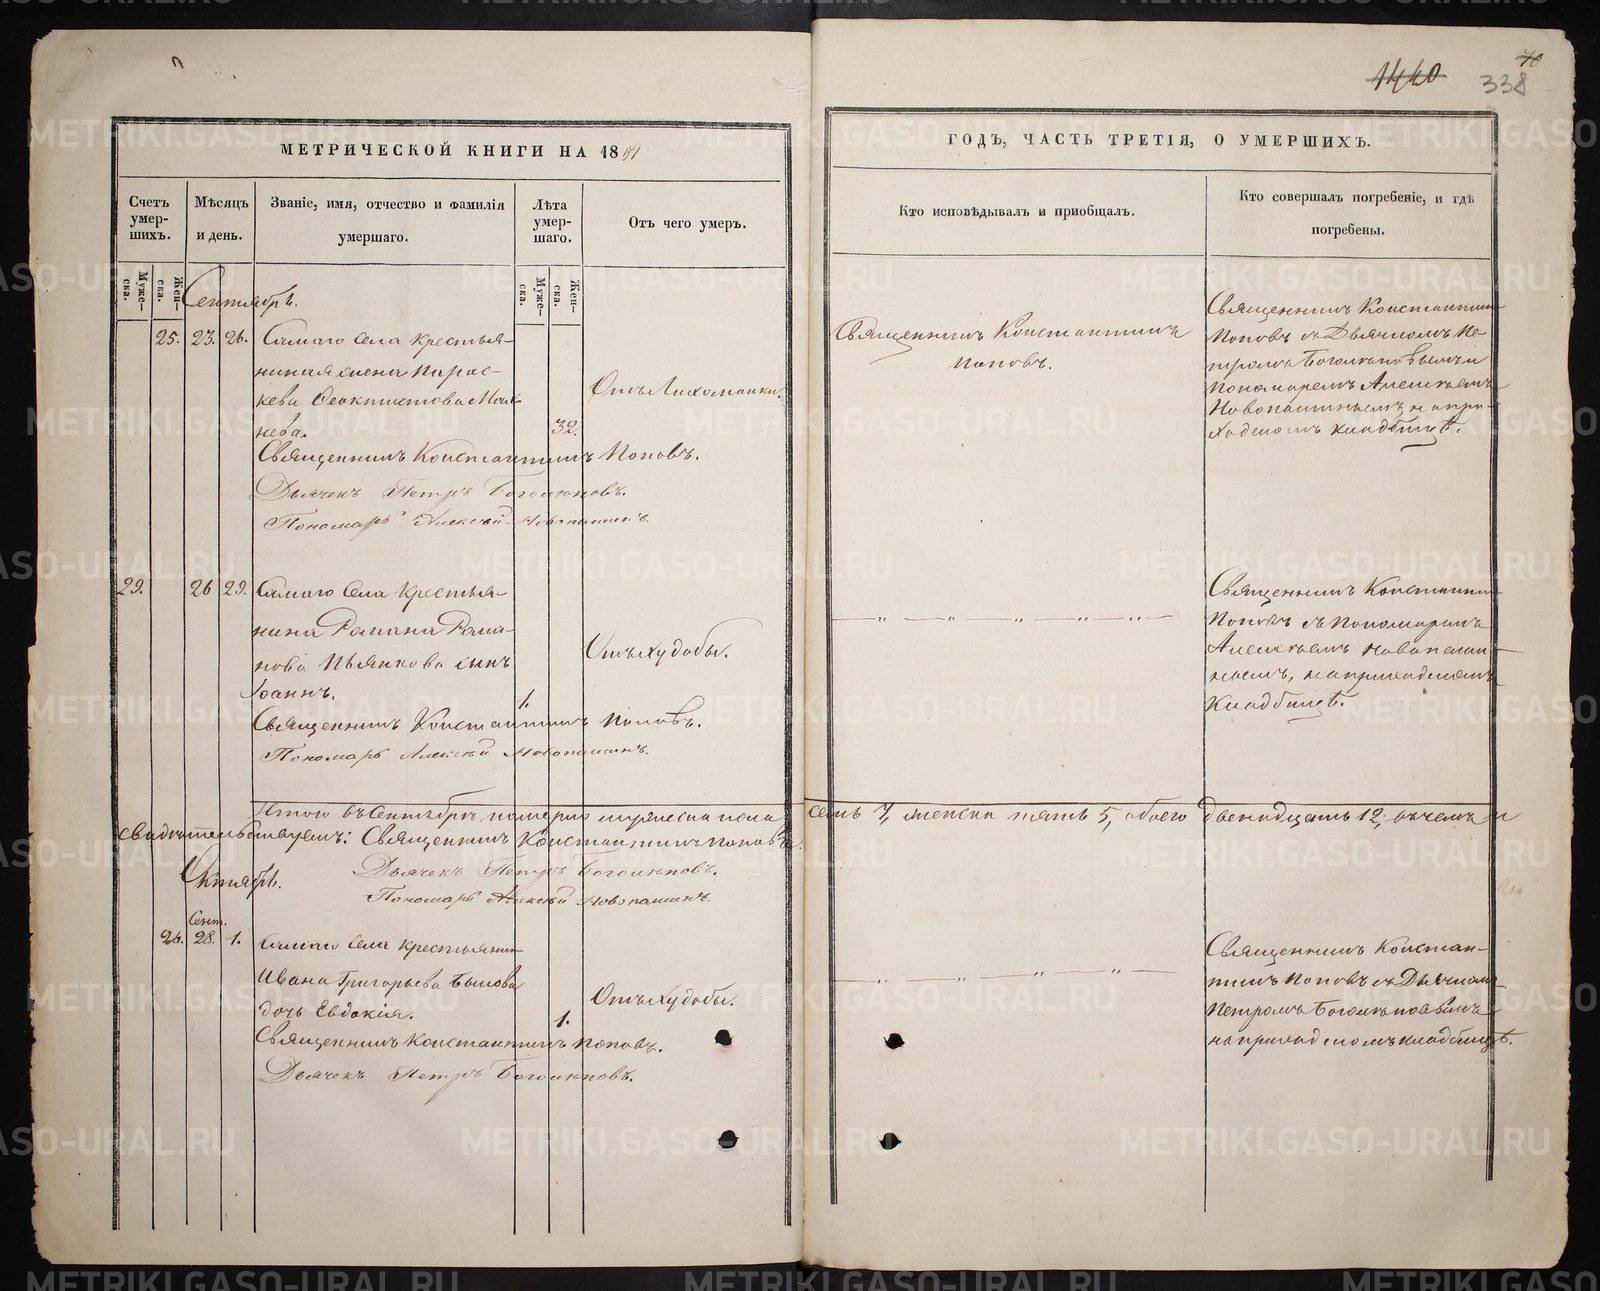 1440
70
338
МЕТРИЧЕСКОЙ КНИГИ НА 1851
ГОДЪ, ЧАСТЬ ТРЕТІЯ, О УМЕРШИХЪ.
Счетъ умер-шихъ.
Мѣсяцъ и день.
Званіе, имя, отчество и фамилія
умершаго.
Лѣта умер-шаго.
Отъ чего умеръ.
Кто исповѣдывалъ и приобщалъ.
Кто совершалъ погребеніе, и гдѣ
погребены.
Муже-ска.
Жен-ска.
Муже-ска.
Жен-ска.
Сентябрь.
25. 23. 26. Самаго Села крестья-
нина жена Парас-
кева Феоктистова
32.
Отъ Лихоманки.
Священникъ Константинъ Поповъ.
Дьячекъ Петръ Боголюповъ.
Пономарь Алексѣй Новопашинъ.
Священникъ Константинъ
Поповъ.
Священникъ Константинъ
Поповъ съ Дьячкомъ Пе-
тромъ Боголюповымъ и
Пономаремъ Алексѣемъ
Новопашинымъ, на при-
ходскомъ кладбищѣ.
29. 26 29. Самаго Села крестья-
нина Романа Рома-
нова Пьянкова сынъ
Іоаннъ.
1.
Отъ худобы.
Священникъ Константинъ Поповъ.
Пономарь Алексѣй Новопашинъ.
— „ — „ — „ — „ — „ —
Священникъ Константинъ
Поповъ съ Пономаремъ
Алексѣемъ Новопашин-
нымъ, на приходскомъ
кладбищѣ.
Итого въ Сентябрѣ померло мужеска пола семь 7, женска пять 5, обоего двенадцать 12, въ чемъ и
свидѣтельствуемъ: Священникъ Константинъ Поповъ.
Дьячекъ Петръ Боголюповъ.
Пономарь Алексѣй Новопашинъ.
Октябрь.
Сент.
26. 28. 1. Самаго Села крестьянина
Ивана Григорьева Быкова
дочь Евдокія.
1.
Отъ худобы.
Священникъ Константинъ Поповъ.
Дьячекъ Петръ Боголюповъ.
— „ — „ — „ — „ —
Священникъ Констан-
тинъ Поповъ съ Дьячкомъ
Петромъ Боголюповымъ
на приходскомъ кладбищѣ.
METRIKI.GASO-URAL.RU